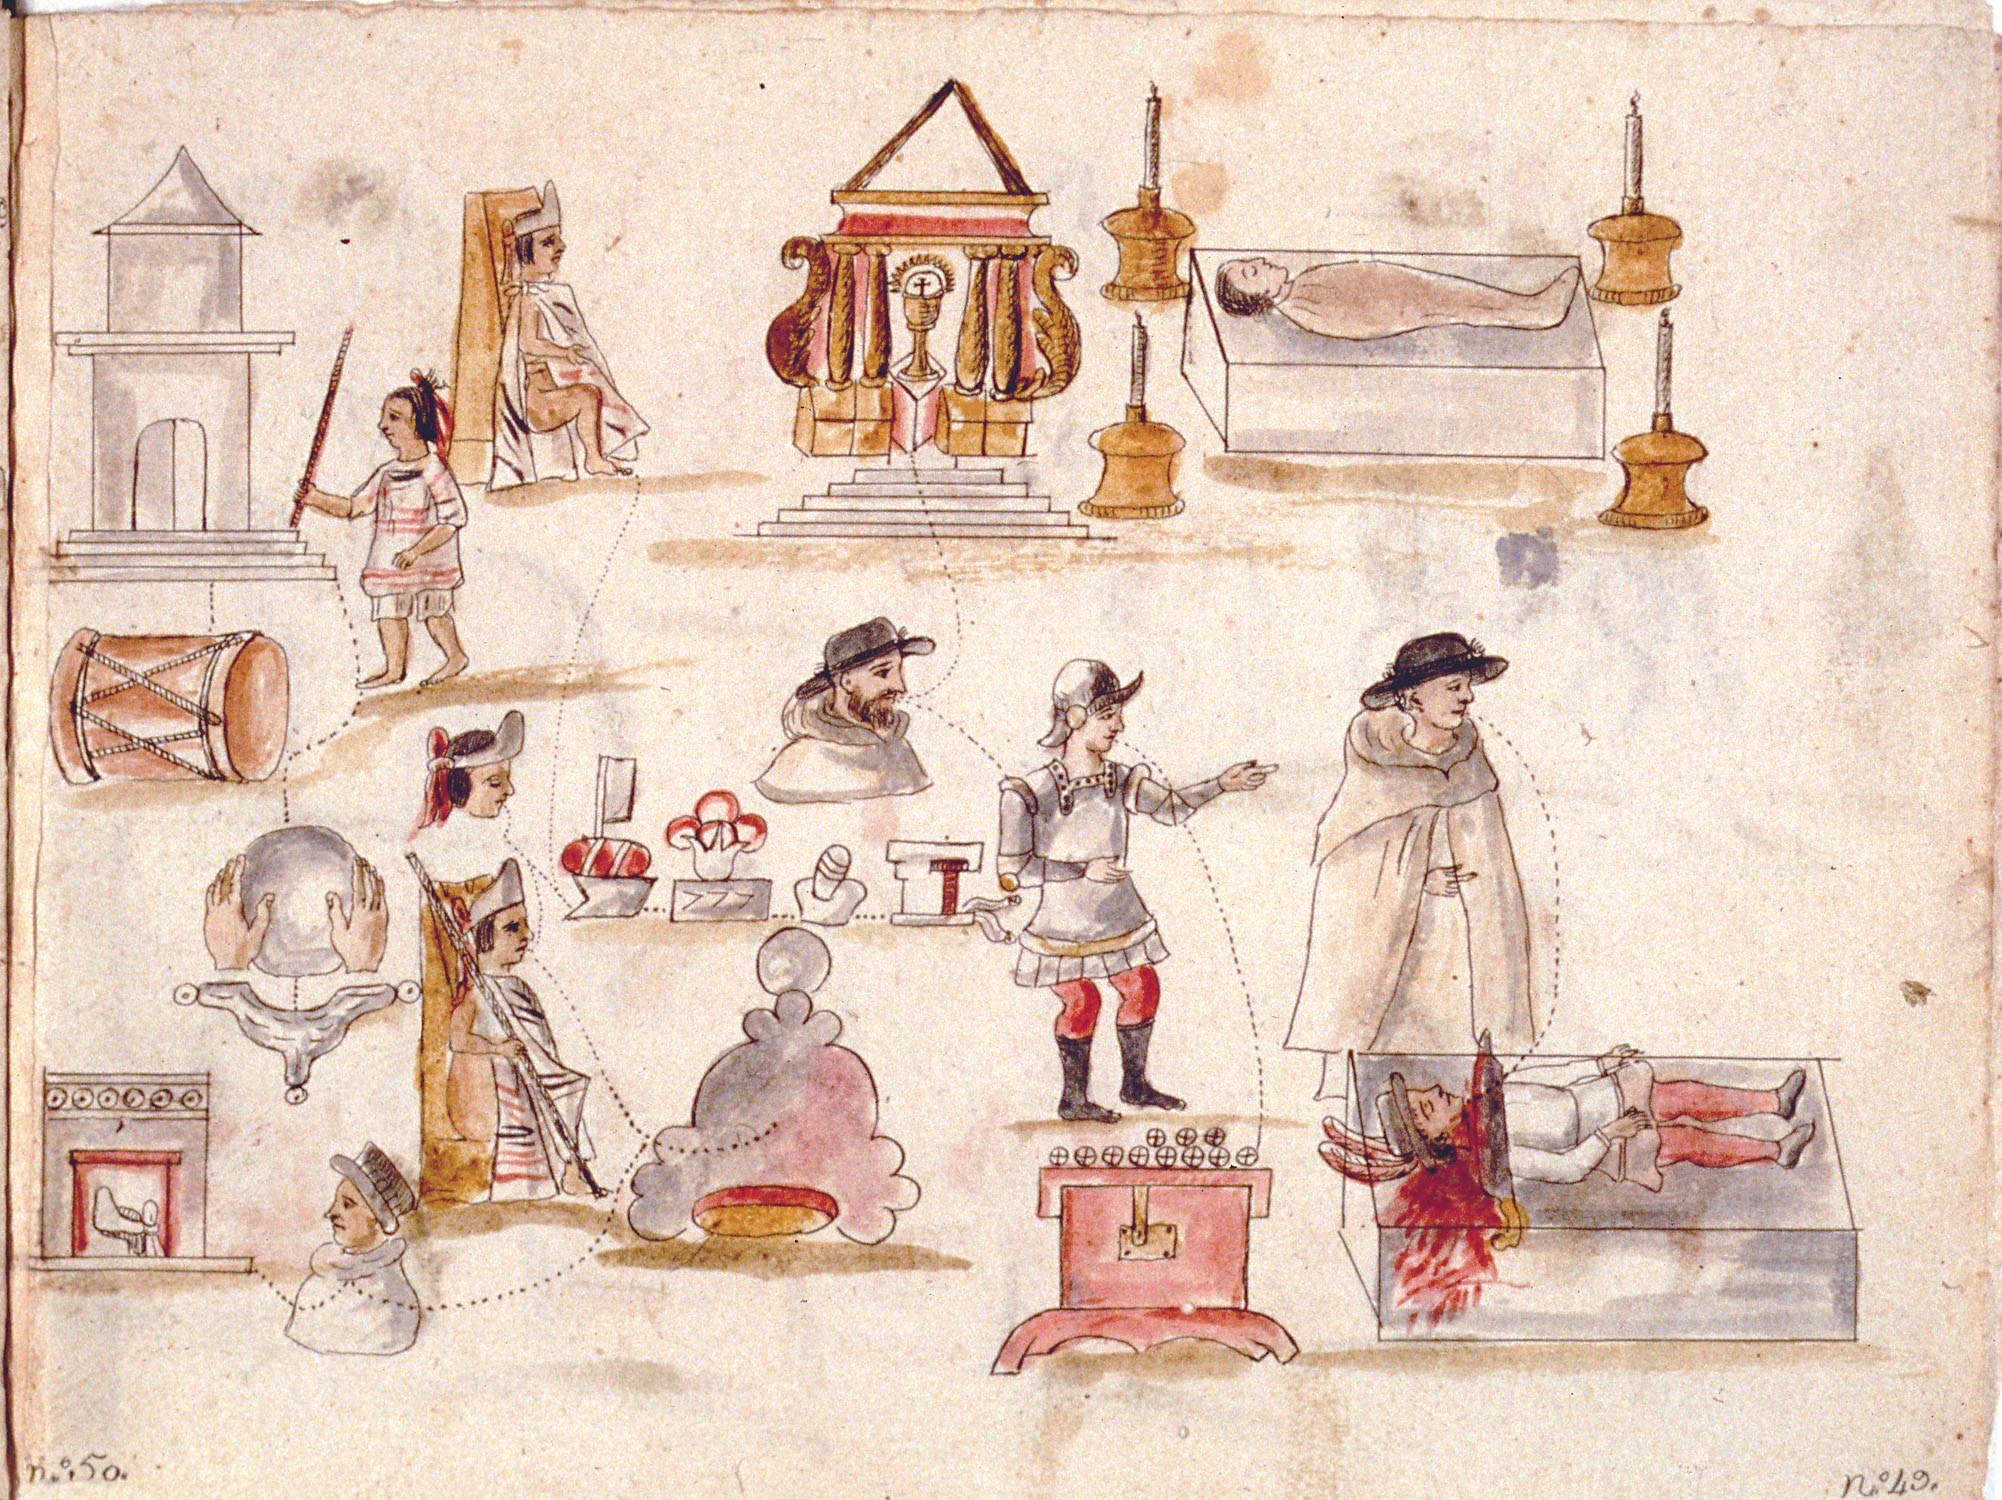 n.º 50.
N.º 49.